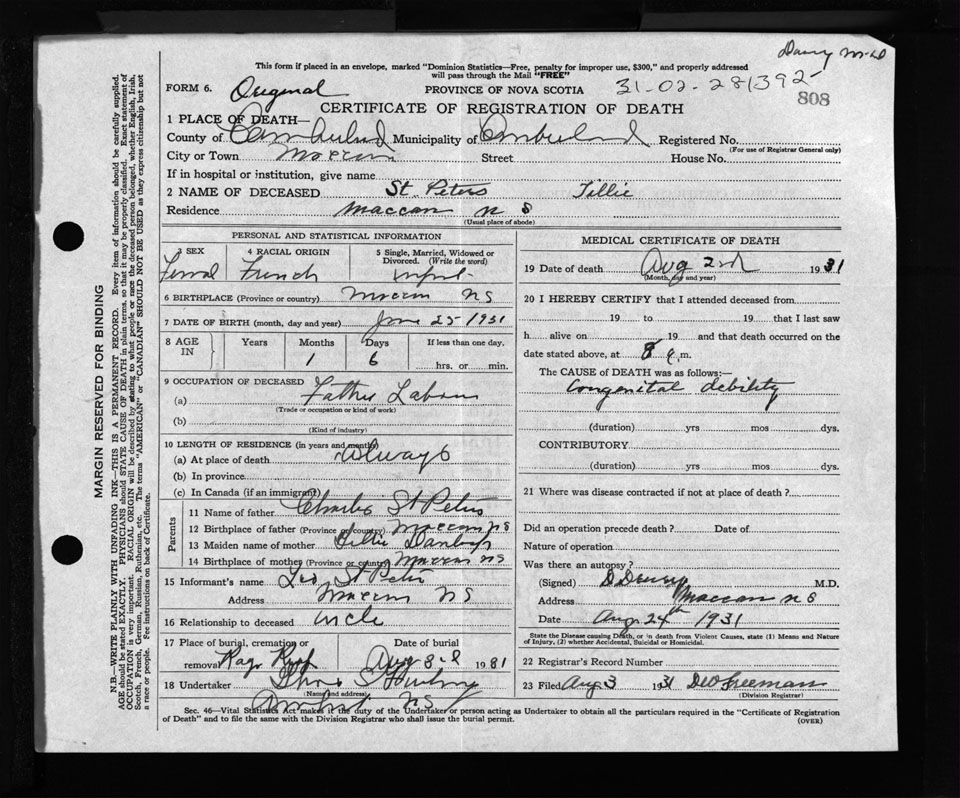 This form if placed in an envelope, marked "Dominion Statistics—Free, penalty for improper use, $300," and properly addressed
will pass through the Mail "FREE"
FORM 6. Original PROVINCE OF NOVA SCOTIA 31-02-281392
808
CERTIFICATE OF REGISTRATION OF DEATH
1 PLACE OF DEATH—
County of Cumberland Municipality of Cumberland Registered No.
(For use of Registrar General only)
City or Town Maccan Street House No.
If in hospital or institution, give name
2 NAME OF DECEASED St. Peters Tillie
Residence Maccan N S
(Usual place of abode)
PERSONAL AND STATISTICAL INFORMATION
3 SEX 4 RACIAL ORIGIN 5 Single, Married, Widowed or
Divorced. (Write the word)
Femal French infant
6 BIRTHPLACE (Province or country) Maccan NS
7 DATE OF BIRTH (month, day and year) June 25 1931
8 AGE IN Years Months Days If less than one day.
1 6 hrs. or min.
9 OCCUPATION OF DECEASED
(a) Father Labour
(Trade or occupation or kind of work)
(b)
(Kind of industry)
10 LENGTH OF RESIDENCE (in years and months)
(a) At place of death always
(b) In province
(c) In Canada (if an immigrant)
Parents
11 Name of father Charles St Peters
12 Birthplace of father (Province or country) Maccan NS
13 Maiden name of mother
14 Birthplace of mother (Province or country) Maccan NS
15 Informant's name Leo St Peter
Address Maccan NS
16 Relationship to deceased uncle
17 Place of burial, cremation or Date of burial
removal Aug 3rd 1931
18 Undertaker
(Name and address)
Amherst NS
MEDICAL CERTIFICATE OF DEATH
19 Date of death Aug 2nd 1931
(Month, day and year)
20 I HEREBY CERTIFY that I attended deceased from
19 to 19 that I last saw
h alive on 19 and that death occurred on the
date stated above, at 8 a.m.
The CAUSE OF DEATH was as follows:—
Congenital debility
(duration) yrs mos dys.
CONTRIBUTORY
(duration) yrs mos dys.
21 Where was disease contracted if not at place of death?
Did an operation precede death? Date of
Nature of operation
Was there an autopsy?
(Signed) M.D.
Address Maccan N S
Date Aug 24th 1931
State the Disease causing Death, or in death from Violent Causes, state (1) Means and Nature
of Injury, (2) whether Accidental, Suicidal or Homicidal.
22 Registrar's Record Number
23 Filed Aug 3 1931 Freeman
(Division Registrar)
Sec. 46—Vital Statistics Act makes it the duty of the Undertaker or person acting as Undertaker to obtain all the particulars required in the "Certificate of Registration
of Death" and to file the same with the Division Registrar who shall issue the burial permit.
(OVER)
MARGIN RESERVED FOR BINDING
N.B.—WRITE PLAINLY WITH UNFADING INK—THIS IS A PERMANENT RECORD. Every item of information should be carefully supplied.
AGE should be stated EXACTLY. PHYSICIANS should STATE CAUSE OF DEATH in plain terms, so that it may be properly classified. Exact statement of
OCCUPATION is very important. RACIAL ORIGIN will be described by stating to what people or race the deceased person belonged, whether English, Irish,
Scotch, French, German, Russian, Ruthenian, etc. The terms "AMERICAN" or "CANADIAN" SHOULD NOT BE USED as they express citizenship but not
a race or people. Fee instructions on back of Certificate.